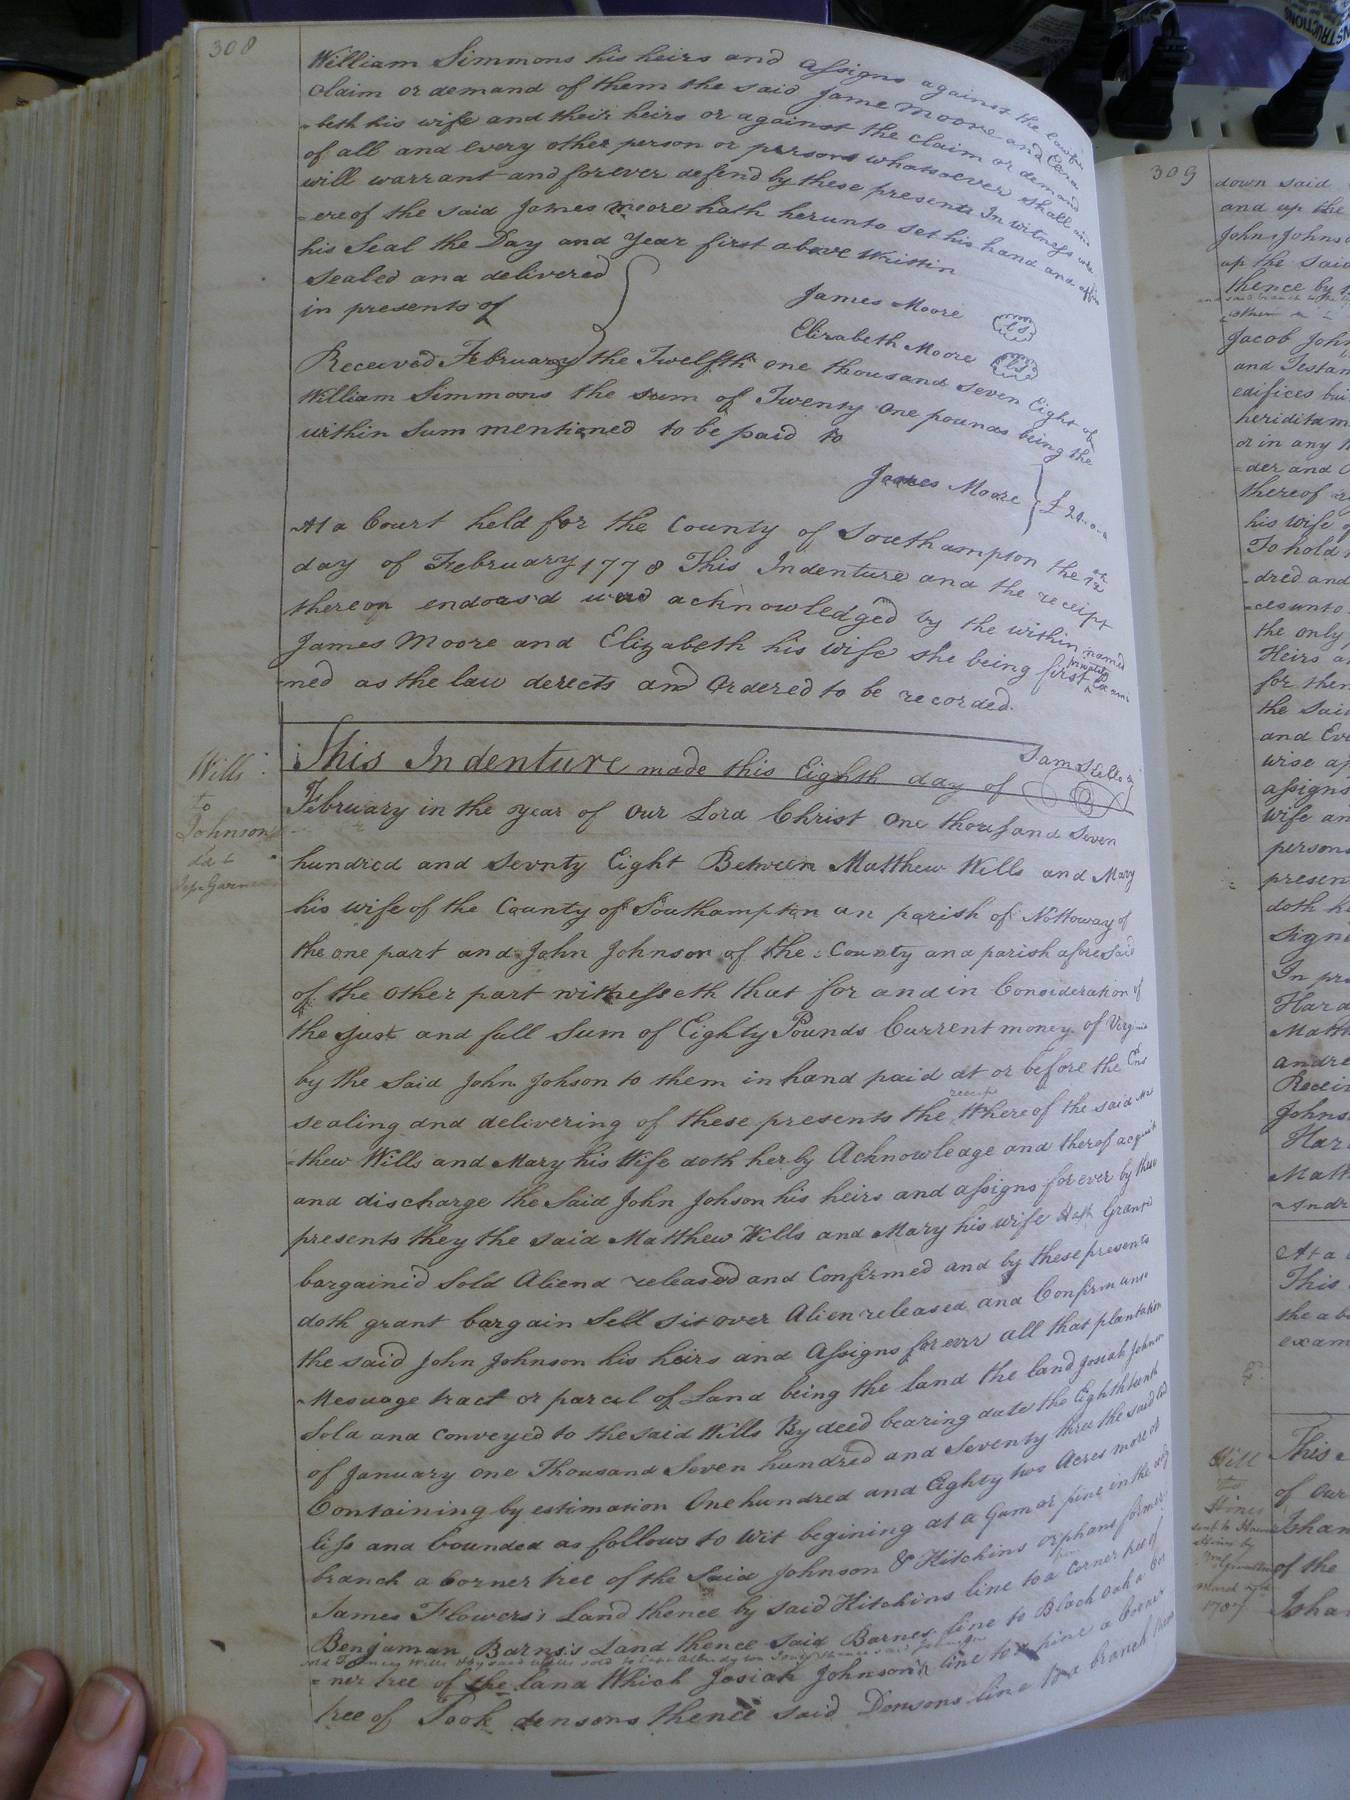 308
William Simmons his heirs and assigns against the lawful
Claim or demand of them the said Jame Moore and Eliza
=beth his wife and their heirs or against the claim or demand
of all and every other person or persons whatsoever shall and
will warrant and forever defend by these presents In witness wh
=ereof the said James Moore hath herunto set his hand and affix
his Seal the Day and Year first above Writtin
sealed and delivered
in presents of
James Moore ls
Elizabeth Moore ls
Received February the Twelfth one thousand seven Eight of
William Simmons the sum of Twenty one pounds being the
within sum mentioned to be paid to
James Moore £ 21..0..0
At a Court held for the County of Southampton the 12th
day of February 1778 This Indenture and the receipt
thereon endorsd were acknowledged by the within named
James Moore and Elizabeth his wife she being first privately Exami
=ned as the law derects and Ordered to be recorded.
Wills
to
Johnson
This Indenture made this Eighth day of
February in the year of Our Lord Christ One thousand Seven
hundred and Sevnty Eight Between Matthew Wills and Mary
his wife of the County of Southampton an parish of Nottoway of
the one part and John Johnson of the County and parish aforesaid
of the Other part witnesseth that for and in Consideration of
the just and full Sum of Eighty Pounds Current money of Virginia
by the Said John Johson to them in hand paid at or before the Ens
sealing and delivering of these presents the receipt Whereof the said Mat
=thew Wills and Mary his Wife doth herby Acknowledge and therof acquit
and discharge the Said John Johson his heirs and assigns forever by these
presents they the said Matthew Wills and Mary his wife Hath Granted
bargainid Sold Aliend released and Confirmed and by these presents
doth grant bargain Sell sit over Alien released and Confirm unto
the said John Johnson his heirs and Assigns for evrr all that plantation
Mesuage tract or parcel of Land being the land the land Josiah Johnson
Sold and Conveyed to the said Wills By deed bearing date the Eighthteenth
of January one Thousand Seven hundred and Seventy three the said land
Containing by estimation One hundred and Eighty two Acres more or
liss and bounded as follows to wit begining at a Gum or pine in the
branch a Corner tree of the Said Johnson & Hitchins Orphans formerly
James Flowers's Land thence by said Hitchins line to a pine Corner tree of
Benjaman Barns's Land thence said Barnes line to Black Oak a Cor
=ner tree of the land Which Josiah Johnson's line to a pine a Corner
tree of Took densons thence said Densons line to a branch thence
309
down said
and up the
John Johns
up the said
thence by
Jacob John
and Testam
edifices bui
heriditam
or in any
=der and
thereof
his wife of
To hold
=dred and
=ces unto
the only
Heirs an
for them
the Said
and Eve
wise ap
assigns
wife an
person
presen
doth h
Signe
In pr
Hard
Matth
andre
Recei
Johns
Har
Math
Andr
At a
This
the ab
exam
Hill
to
Hines
This
of Our
of the